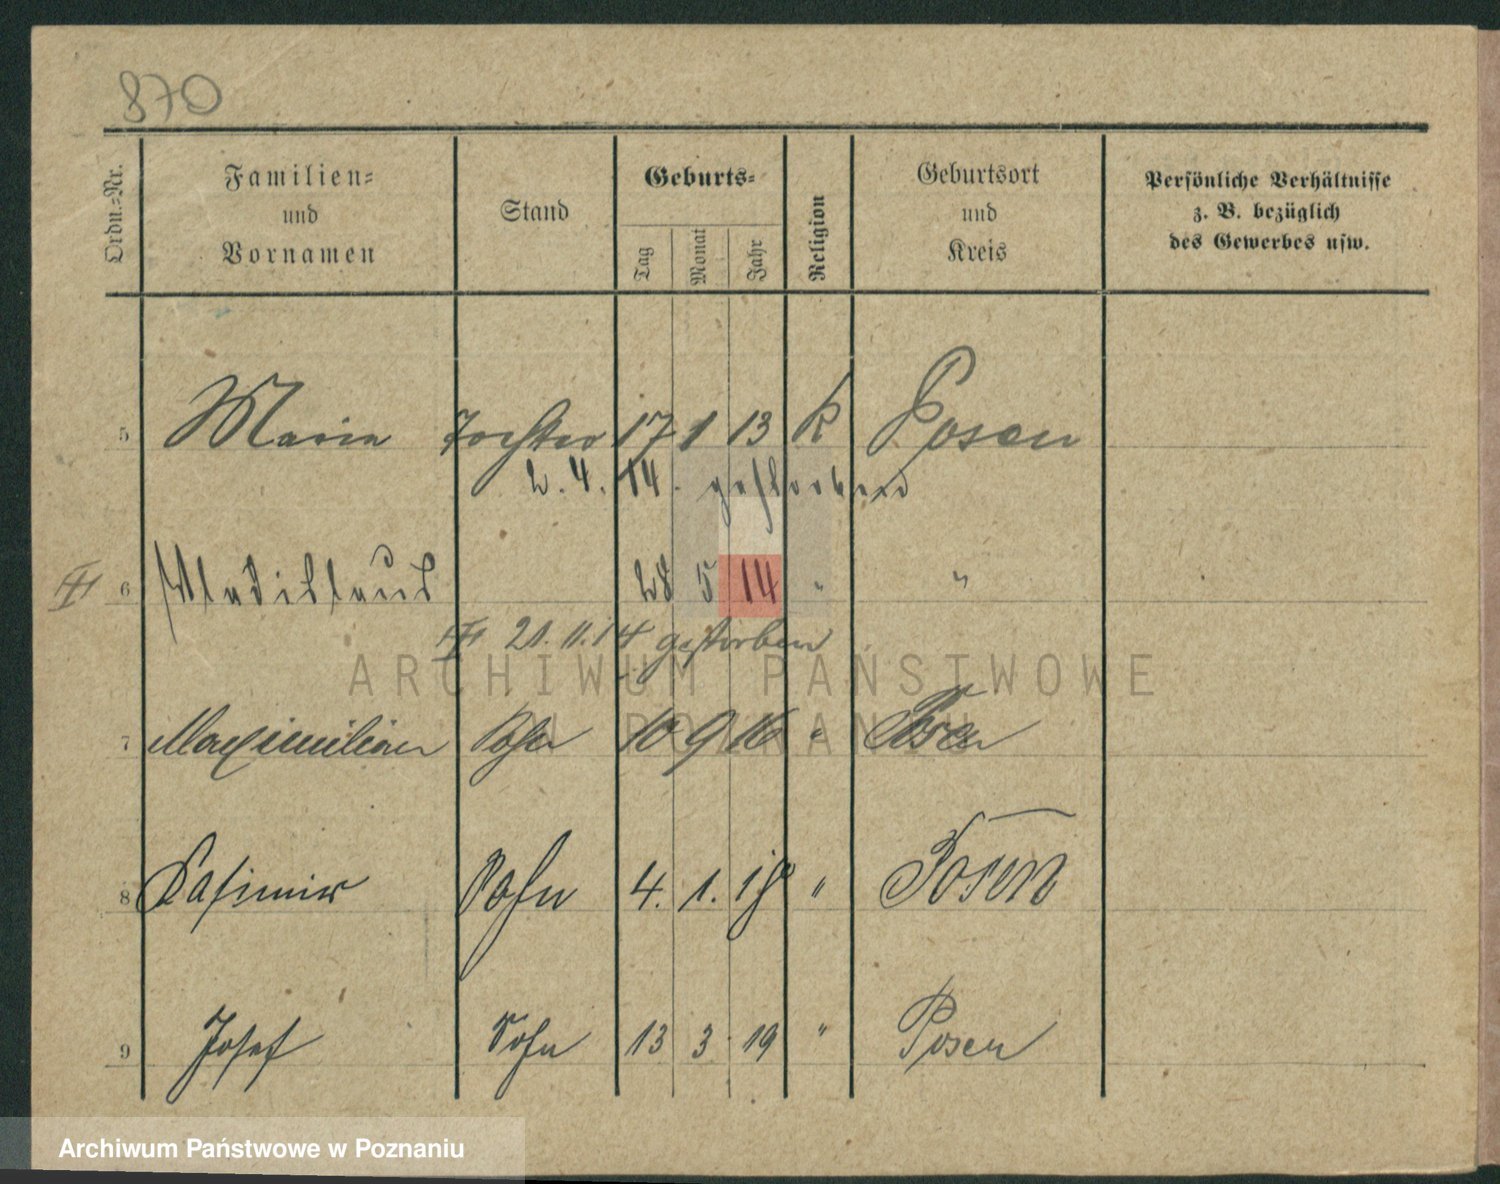 870
Ordn.-Nr. Familien- und Vornamen Stand Geburts- Tag Monat Jahr Religion Geburtsort und Kreis Persönliche Verhältnisse z. B. bezüglich des Gewerbes usw.
5 Maria Tochter 17 1 13 K Posen
2. 4. 14. gestorben
6 Wladislaus 28 5 14 " "
21.11.14 gestorben
ARCHIWUM PAŃSTWOWE
W POZNANIU
7 Maximilian Sohn 10 9 16 " Posen
8 Kasimir Sohn 4. 1. 18 " Posen
9 Josef Sohn 13 3 19 " Posen
Archiwum Państwowe w Poznaniu